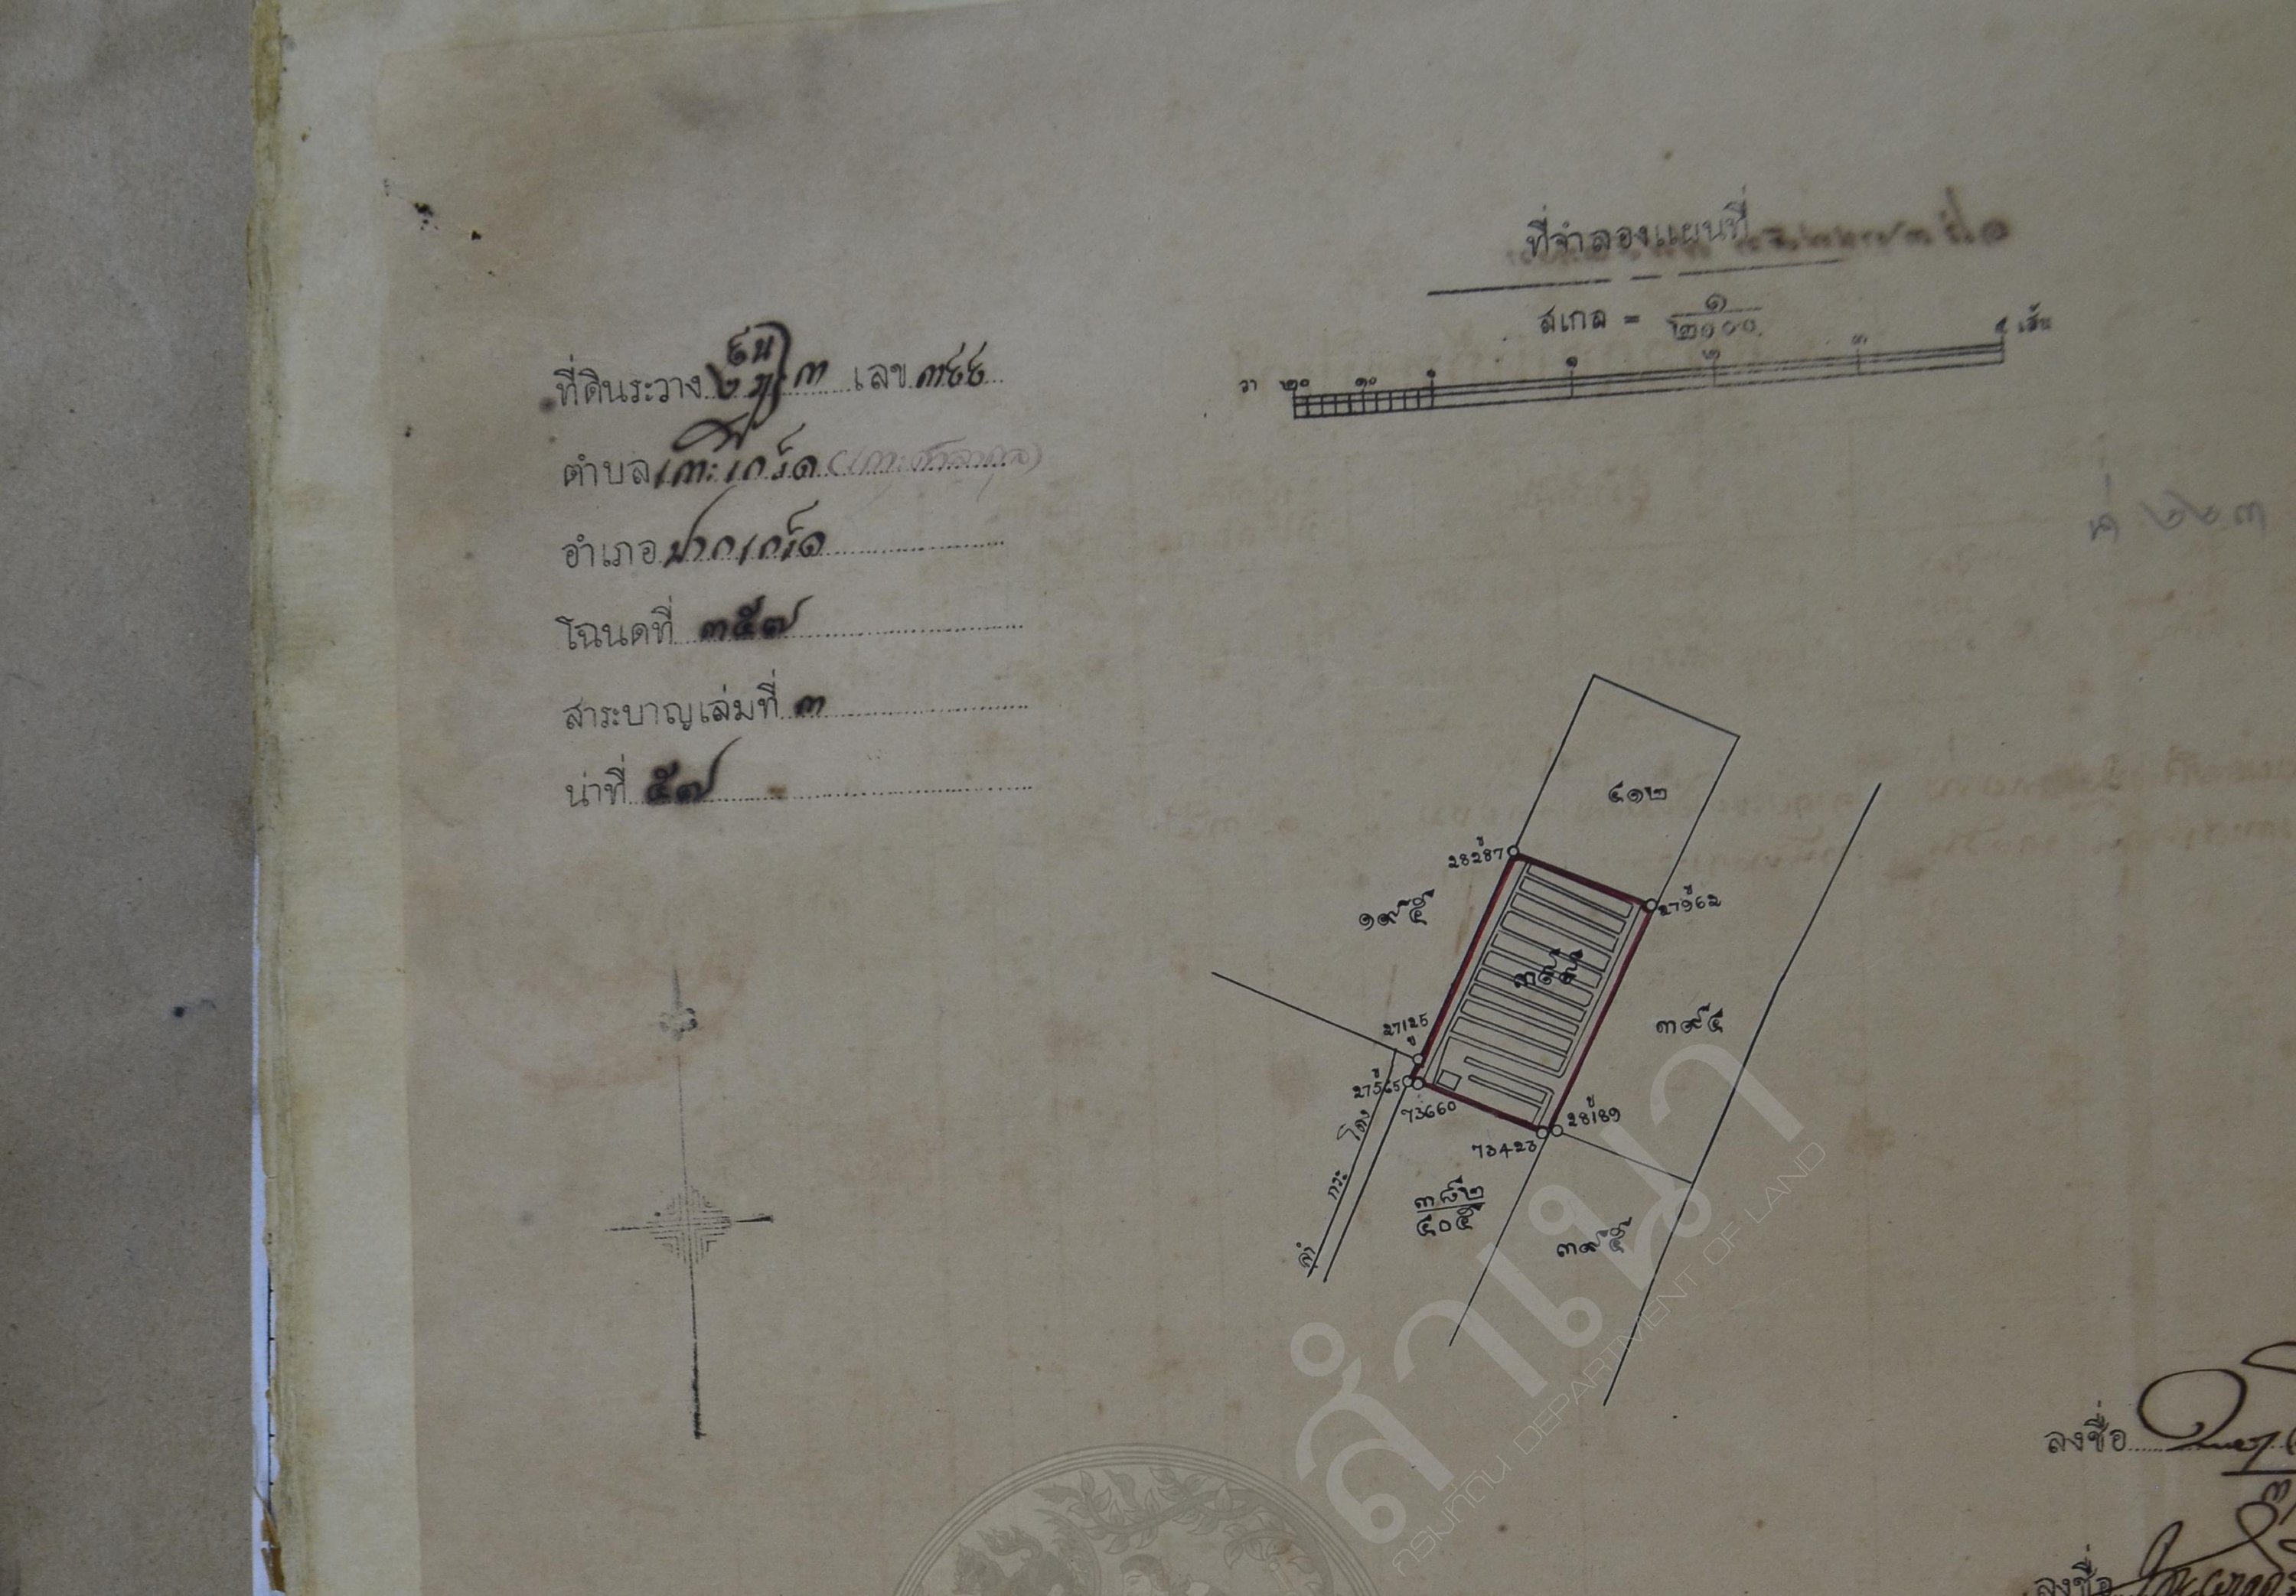 ที่จำลองแผนที่
สเกล = ๑/๒๑๐๐
วา ๒๐ ๑๐ ๑ ๒ ๓ ๔ เส้น
ที่ดินระวาง ๓ เลข
ตำบล เกาะเกร็ด (เกาะศาลากุล)
อำเภอ ปากเกร็ด
โฉนดที่ ๓๕๗
สาระบาญเล่มที่ ๓
น่าที่ ๕๗
ที่ ๒๒๓
๔๑๒
28287
27962
๑๙๕
๓๙๔
27125
27565
73660
28189
73423
ลำ กระ โดง
๓๘๒/๔๐๕
๓๙๕
สำเนา
กรมที่ดิน DEPARTMENT OF LAND
ลงชื่อ
ลงชื่อ